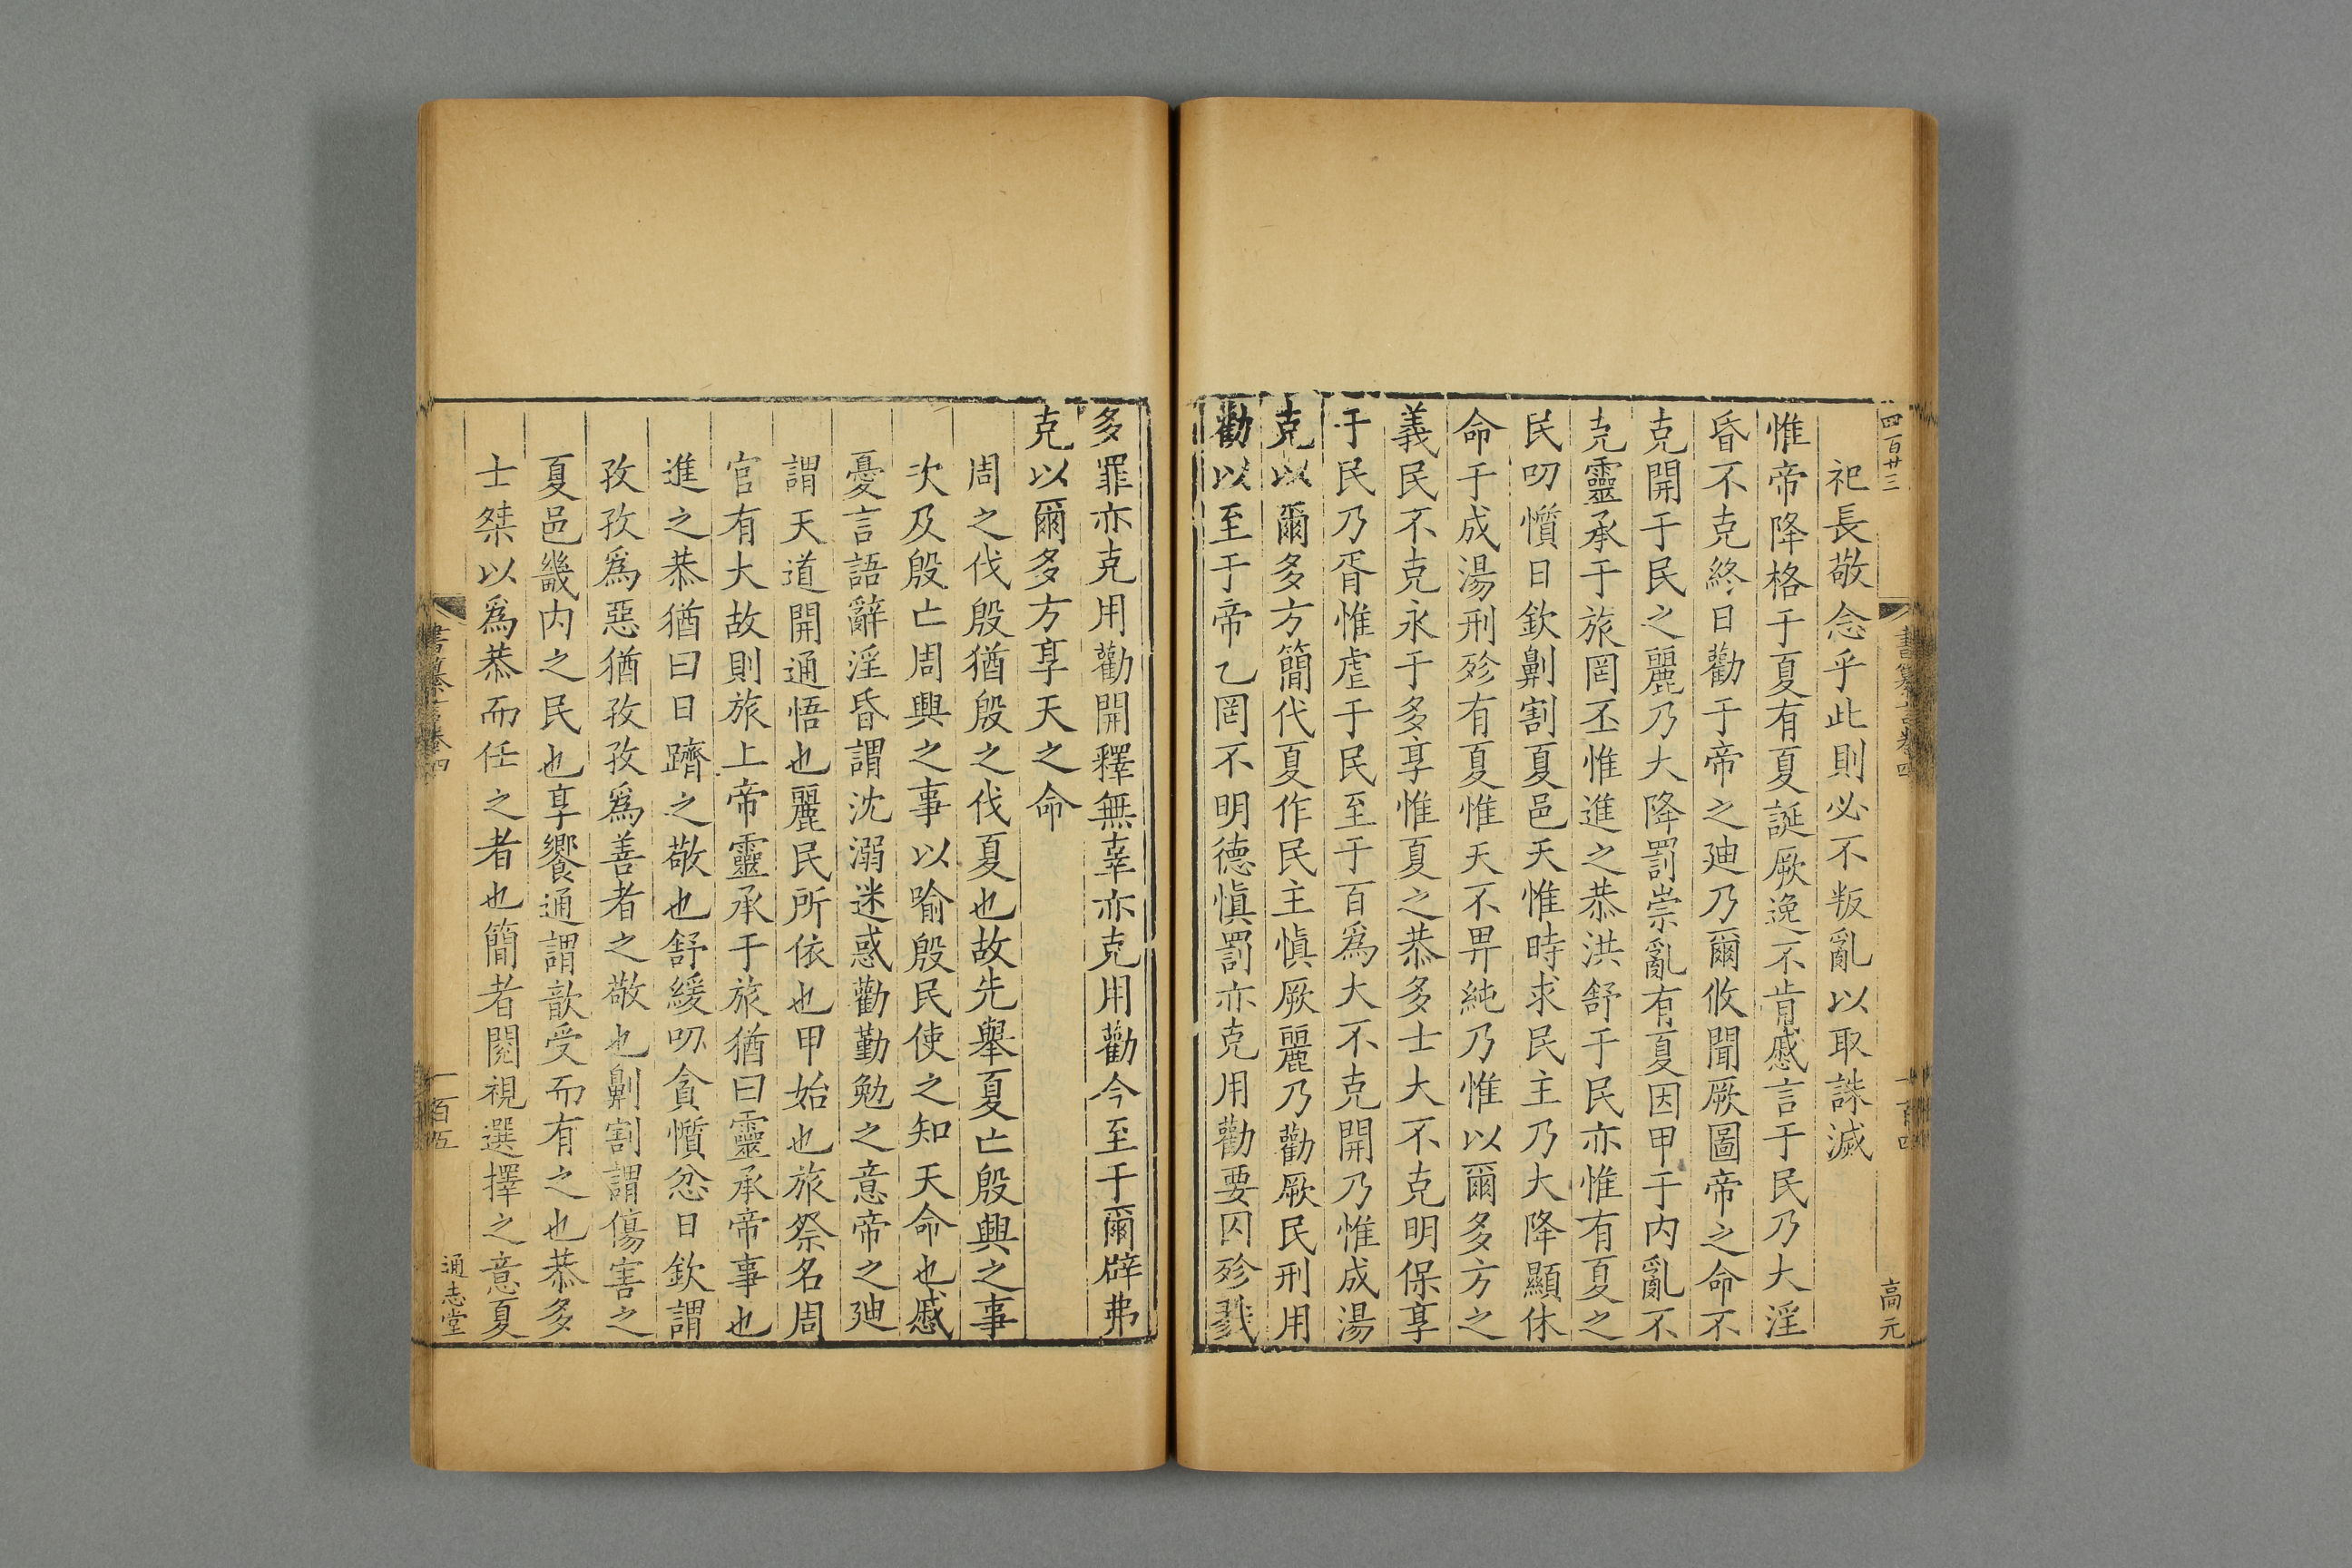 四百廿三
書纂言卷四
高元
祀長敬念乎此則必不叛亂以取誅滅
惟帝降格于夏有夏誕厥逸不肯慼言于民乃大淫
昏不克終日勸于帝之廸乃爾攸聞厥圖帝之命不
克開于民之麗乃大降罰崇亂有夏因甲于内亂不
克靈承于旅罔丕惟進之恭洪舒于民亦惟有夏之
民叨懫日欽劓割夏邑天惟時求民主乃大降顯休
命于成湯刑殄有夏惟天不畀純乃惟以爾多方之
義民不克永于多享惟夏之恭多士大不克明保享
于民乃胥惟虐于民至于百爲大不克開乃惟成湯
克以爾多方簡代夏作民主愼厥麗乃勸厥民刑用
勸以至于帝乙罔不明德愼罰亦克用勸要囚殄戮
多罪亦克用勸開釋無辜亦克用勸今至于爾辟弗
克以爾多方享天之命
周之伐殷猶殷之伐夏也故先舉夏亡殷興之事
次及殷亡周興之事以喻殷民使之知天命也慼
憂言語辭淫昏謂沈溺迷惑勸勤勉之意帝之廸
謂天道開通悟也麗民所依也甲始也旅祭名周
官有大故則旅上帝靈承于旅猶曰靈承帝事也
進之恭猶曰日躋之敬也舒緩叨貪懫忿日欽謂
孜孜爲惡猶孜孜爲善者之敬也劓割謂傷害之
夏邑畿内之民也享饗通謂歆受而有之也恭多
士桀以爲恭而任之者也簡者閱視選擇之意夏
書纂言卷四
一百五
通志堂